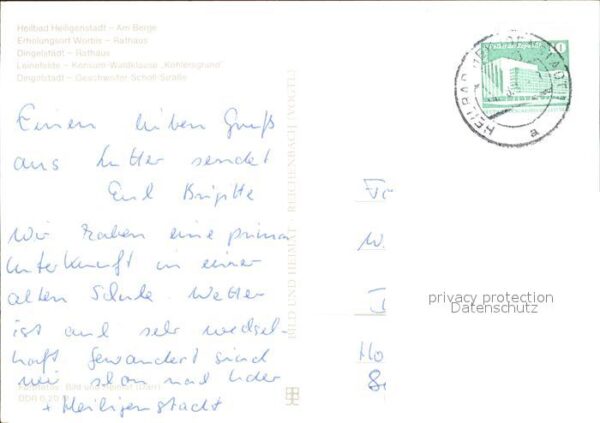 Heilbad Heiligenstadt – Am Berge
Erholungsort Worbis – Rathaus
Dingelstädt – Rathaus
Leinefelde – Konsum-Waldklause „Kohlersgrund“
Dingelstädt – Geschwister-Scholl-Straße
Einen lieben Gruß
aus Lutter sendet
Euch Brigitte
Wir haben eine prima
Unterkunft in einer
alten Schule. Wetter
ist auch sehr wechsel-
haft gewandert sind
wir schon nach Uder
+ Heiligenstadt
BILD UND HEIMAT REICHENBACH (VOGTL)
HEILBAD HEILIGENSTADT
a
privacy protection
Datenschutz